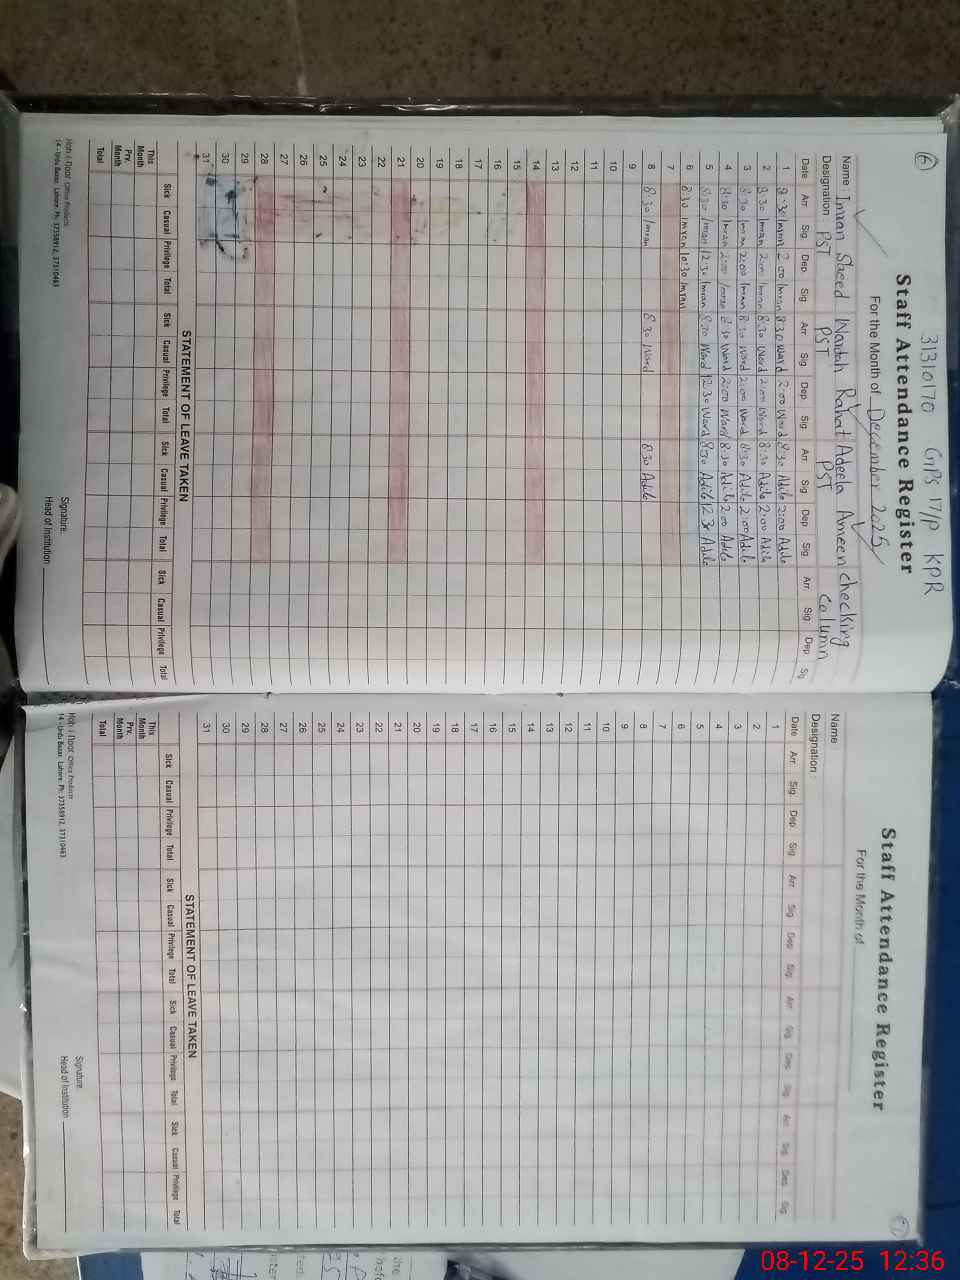 6
31310170 GPS 17/P KPR
Staff Attendance Register
For the Month of December 2025
Name : Imran Saeed Wardah Rahat Adeela Ameen checking column
Designation : PST PST PST
Date Arr Sig Dep Sig Arr Sig Dep Sig Arr Sig Dep Sig Arr Sig Dep Sig
1 8:30 Imran 2:00 Imran 8:30 Ward 2:00 Ward 8:30 Adile 2:00 Adile
2 8:30 Imran 2:00 Imran 8:30 Ward 2:00 Ward 8:30 Adile 2:00 Adile
3 8:30 Imran 2:00 Imran 8:30 Ward 2:00 Ward 8:30 Adile 2:00 Adile
4 8:30 Imran 2:00 Imran 8:30 Ward 2:00 Ward 8:30 Adile 2:00 Adile
5 8:30 Imran 12:30 Imran 8:30 Ward 12:30 Ward 8:30 Adile 12:30 Adile
6 8:30 Imran 10:30 Imran
7
8 8:30 Imran 8:30 Ward 8:30 Adile
9
10
11
12
13
14
15
16
17
18
19
20
21
22
23
24
25
26
27
28
29
30
31
STATEMENT OF LEAVE TAKEN
Sick Casual Privilege Total Sick Casual Privilege Total Sick Casual Privilege Total Sick Casual Privilege Total
This Month
Prv. Month
Total
Signature.
Head of Institution
Office Products
14 - Urdu Bazar Lahore. Ph: 37358912, 37310463
Staff Attendance Register
For the Month of
Name
Designation :
Date Arr. Sig. Dep Sig. Arr. Sig Dep Sig. Arr. Sig. Dep. Sig Arr. Sig. Dep. Sig
1
2
3
4
5
6
7
8
9
10
11
12
13
14
15
16
17
18
19
20
21
22
23
24
25
26
27
28
29
30
31
STATEMENT OF LEAVE TAKEN
Sick Casual Privilege Total Sick Casual Privilege Total Sick Casual Privilege Total Sick Casual Privilege Total
This Month
Prv. Month
Total
Signature.
Head of Institution
Office Products
14 - Urdu Bazar Lahore. Ph: 37358912, 37310463
08-12-25 12:36